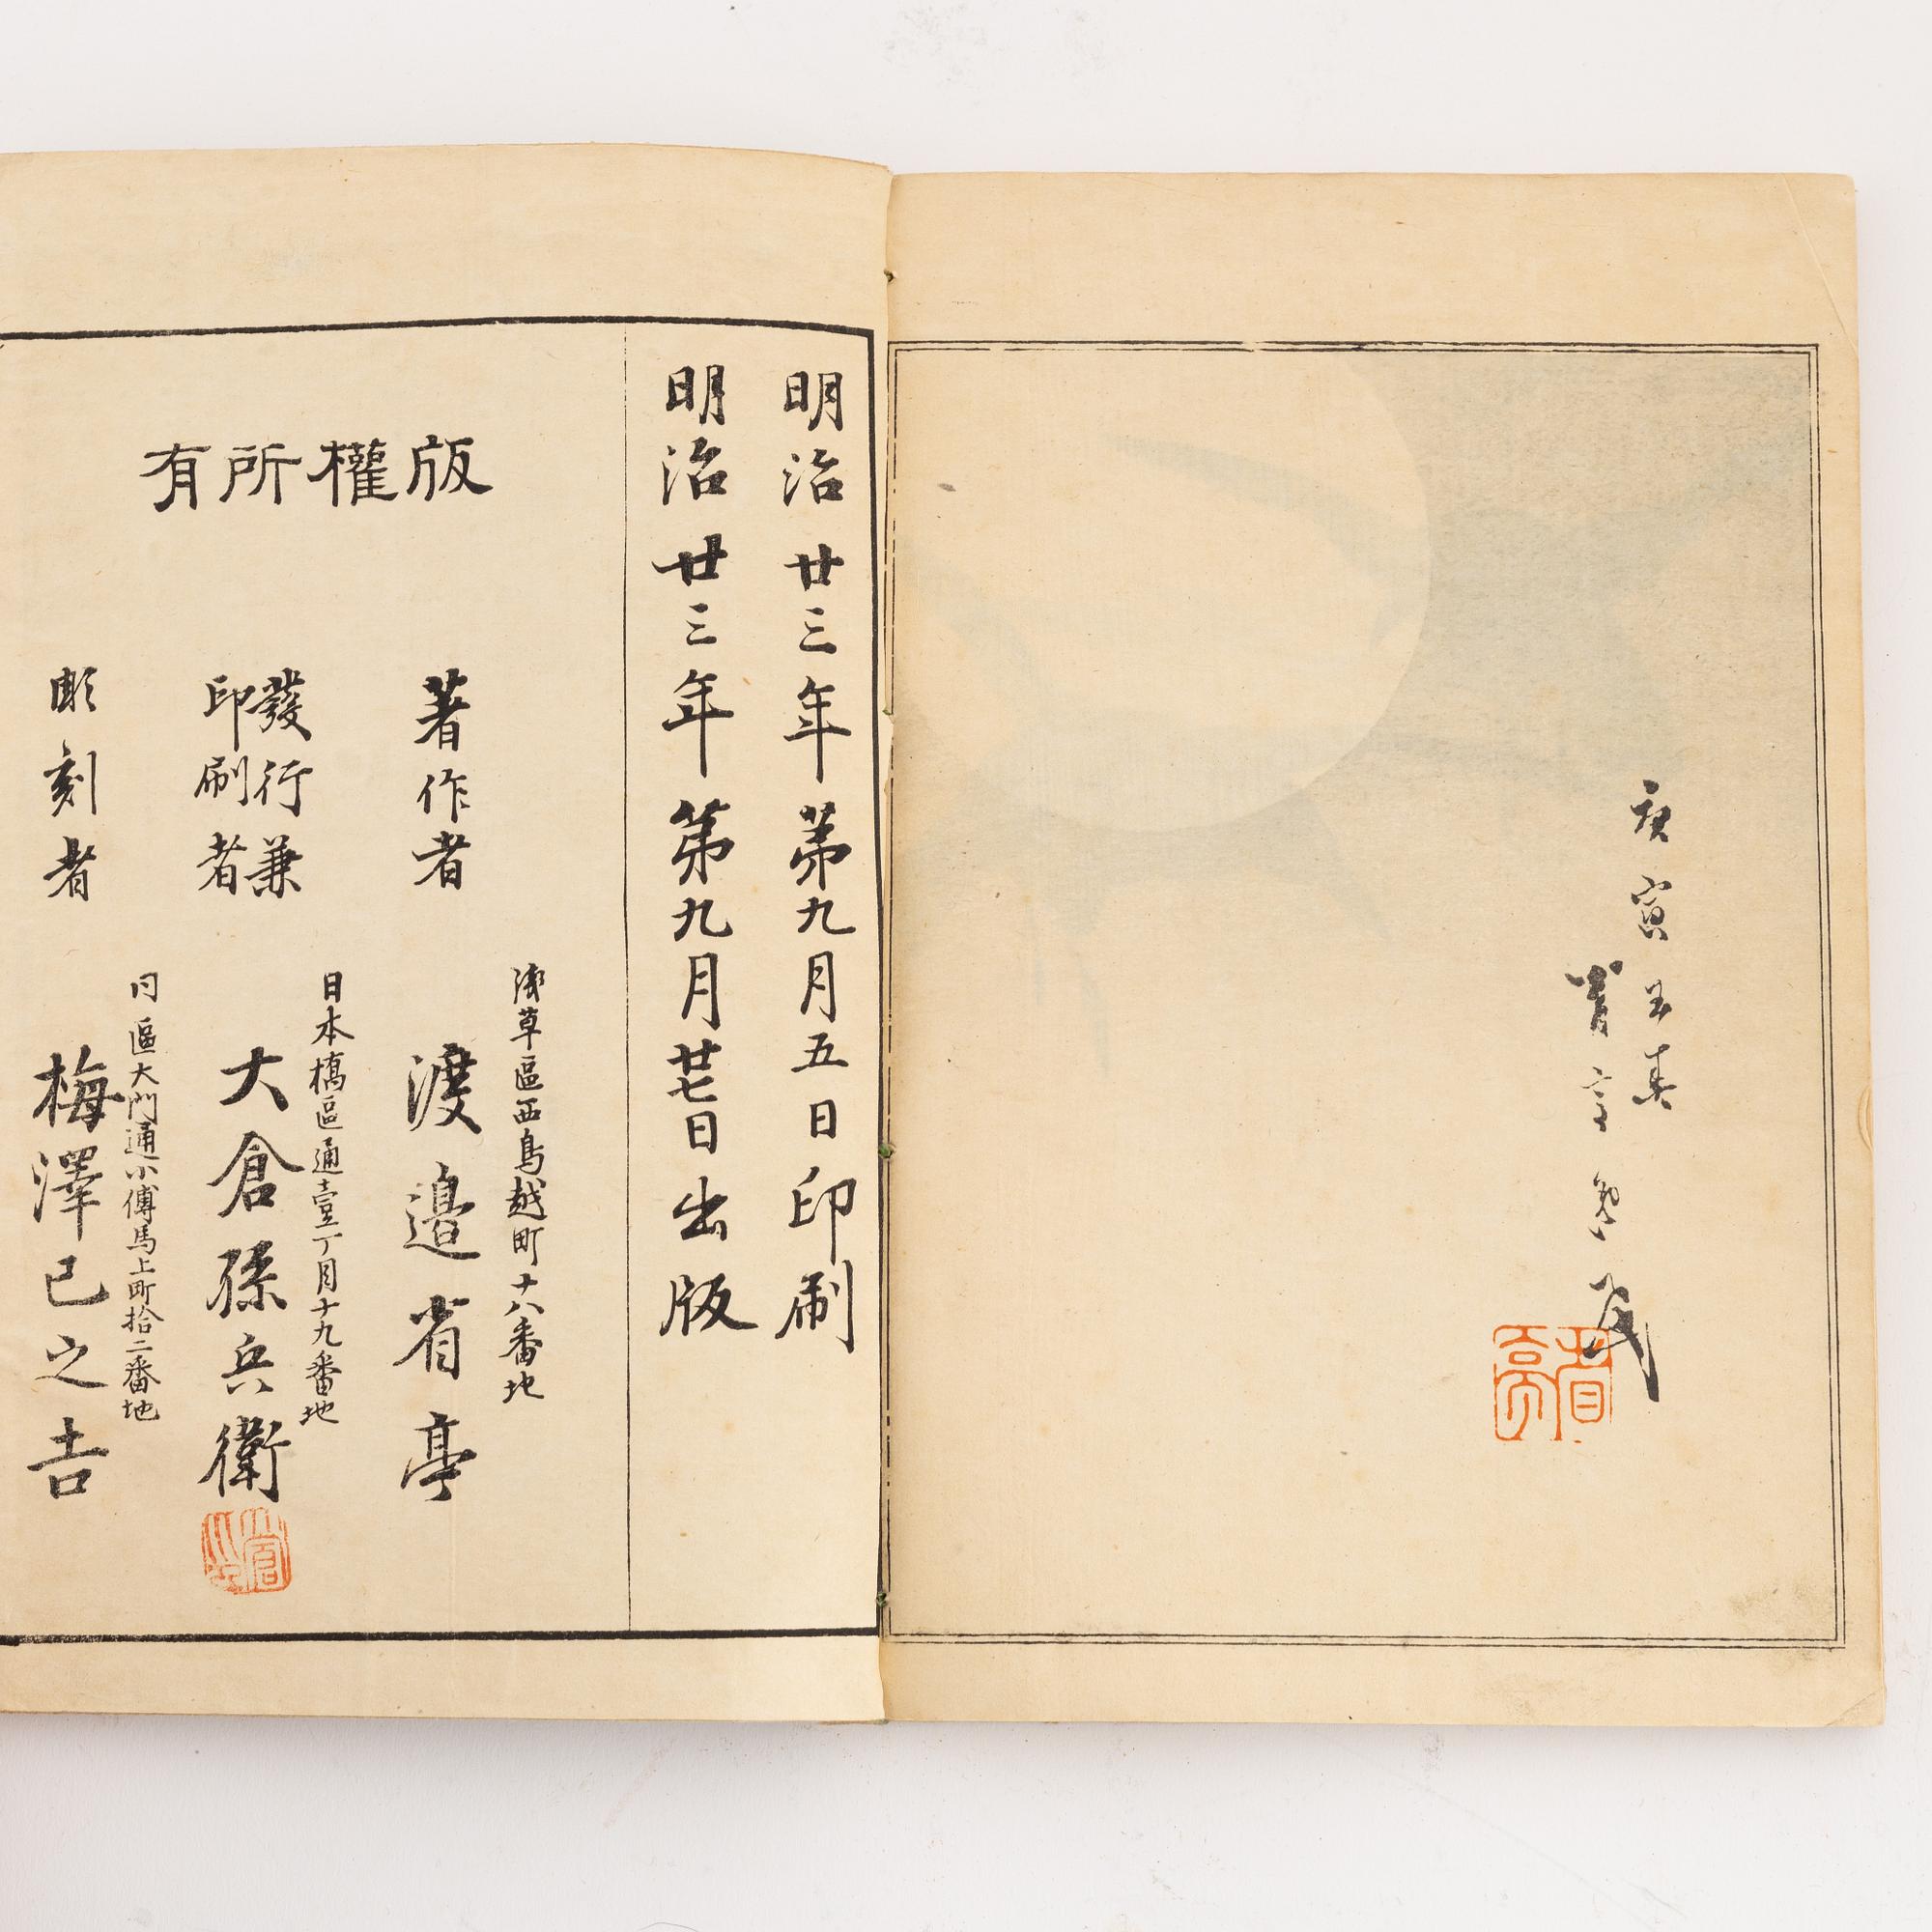 庚寅孟春
省亭
省亭
明治廿三年第九月五日印刷
明治廿三年第九月廿七日出版
版權所有
淺草區西鳥越町十八番地
著作者 渡邉省亭
日本橋區通壹丁目十九番地
發行兼印刷者 大倉孫兵衛
同區大門通小傳馬上町拾二番地
彫刻者 梅澤已之吉